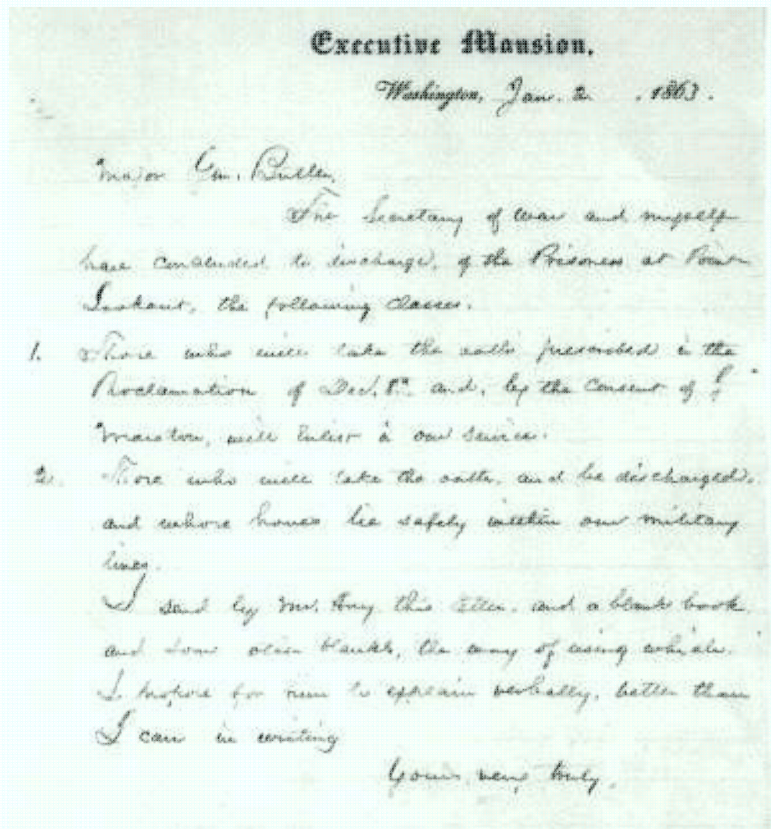 Executive Mansion,
Washington, Jan. 2. , 1863.
Major Gen. Butler,
The Secretary of War and myself
have concluded to discharge, of the Prisoners at Point
Lookout, the following classes.
1. Those who will take the oath prescribed in the
Proclamation of Dec. 8th and, by the consent of
Marston, will enlist in our service.
2. Those who will take the oath, and be discharged,
and whose homes lie safely within our military
lines.
I send by Mr. Hay this letter, and a blank book
and some other blanks, the way of using which
I propose for him to explain verbally, better than
I can in writing
Yours very truly,